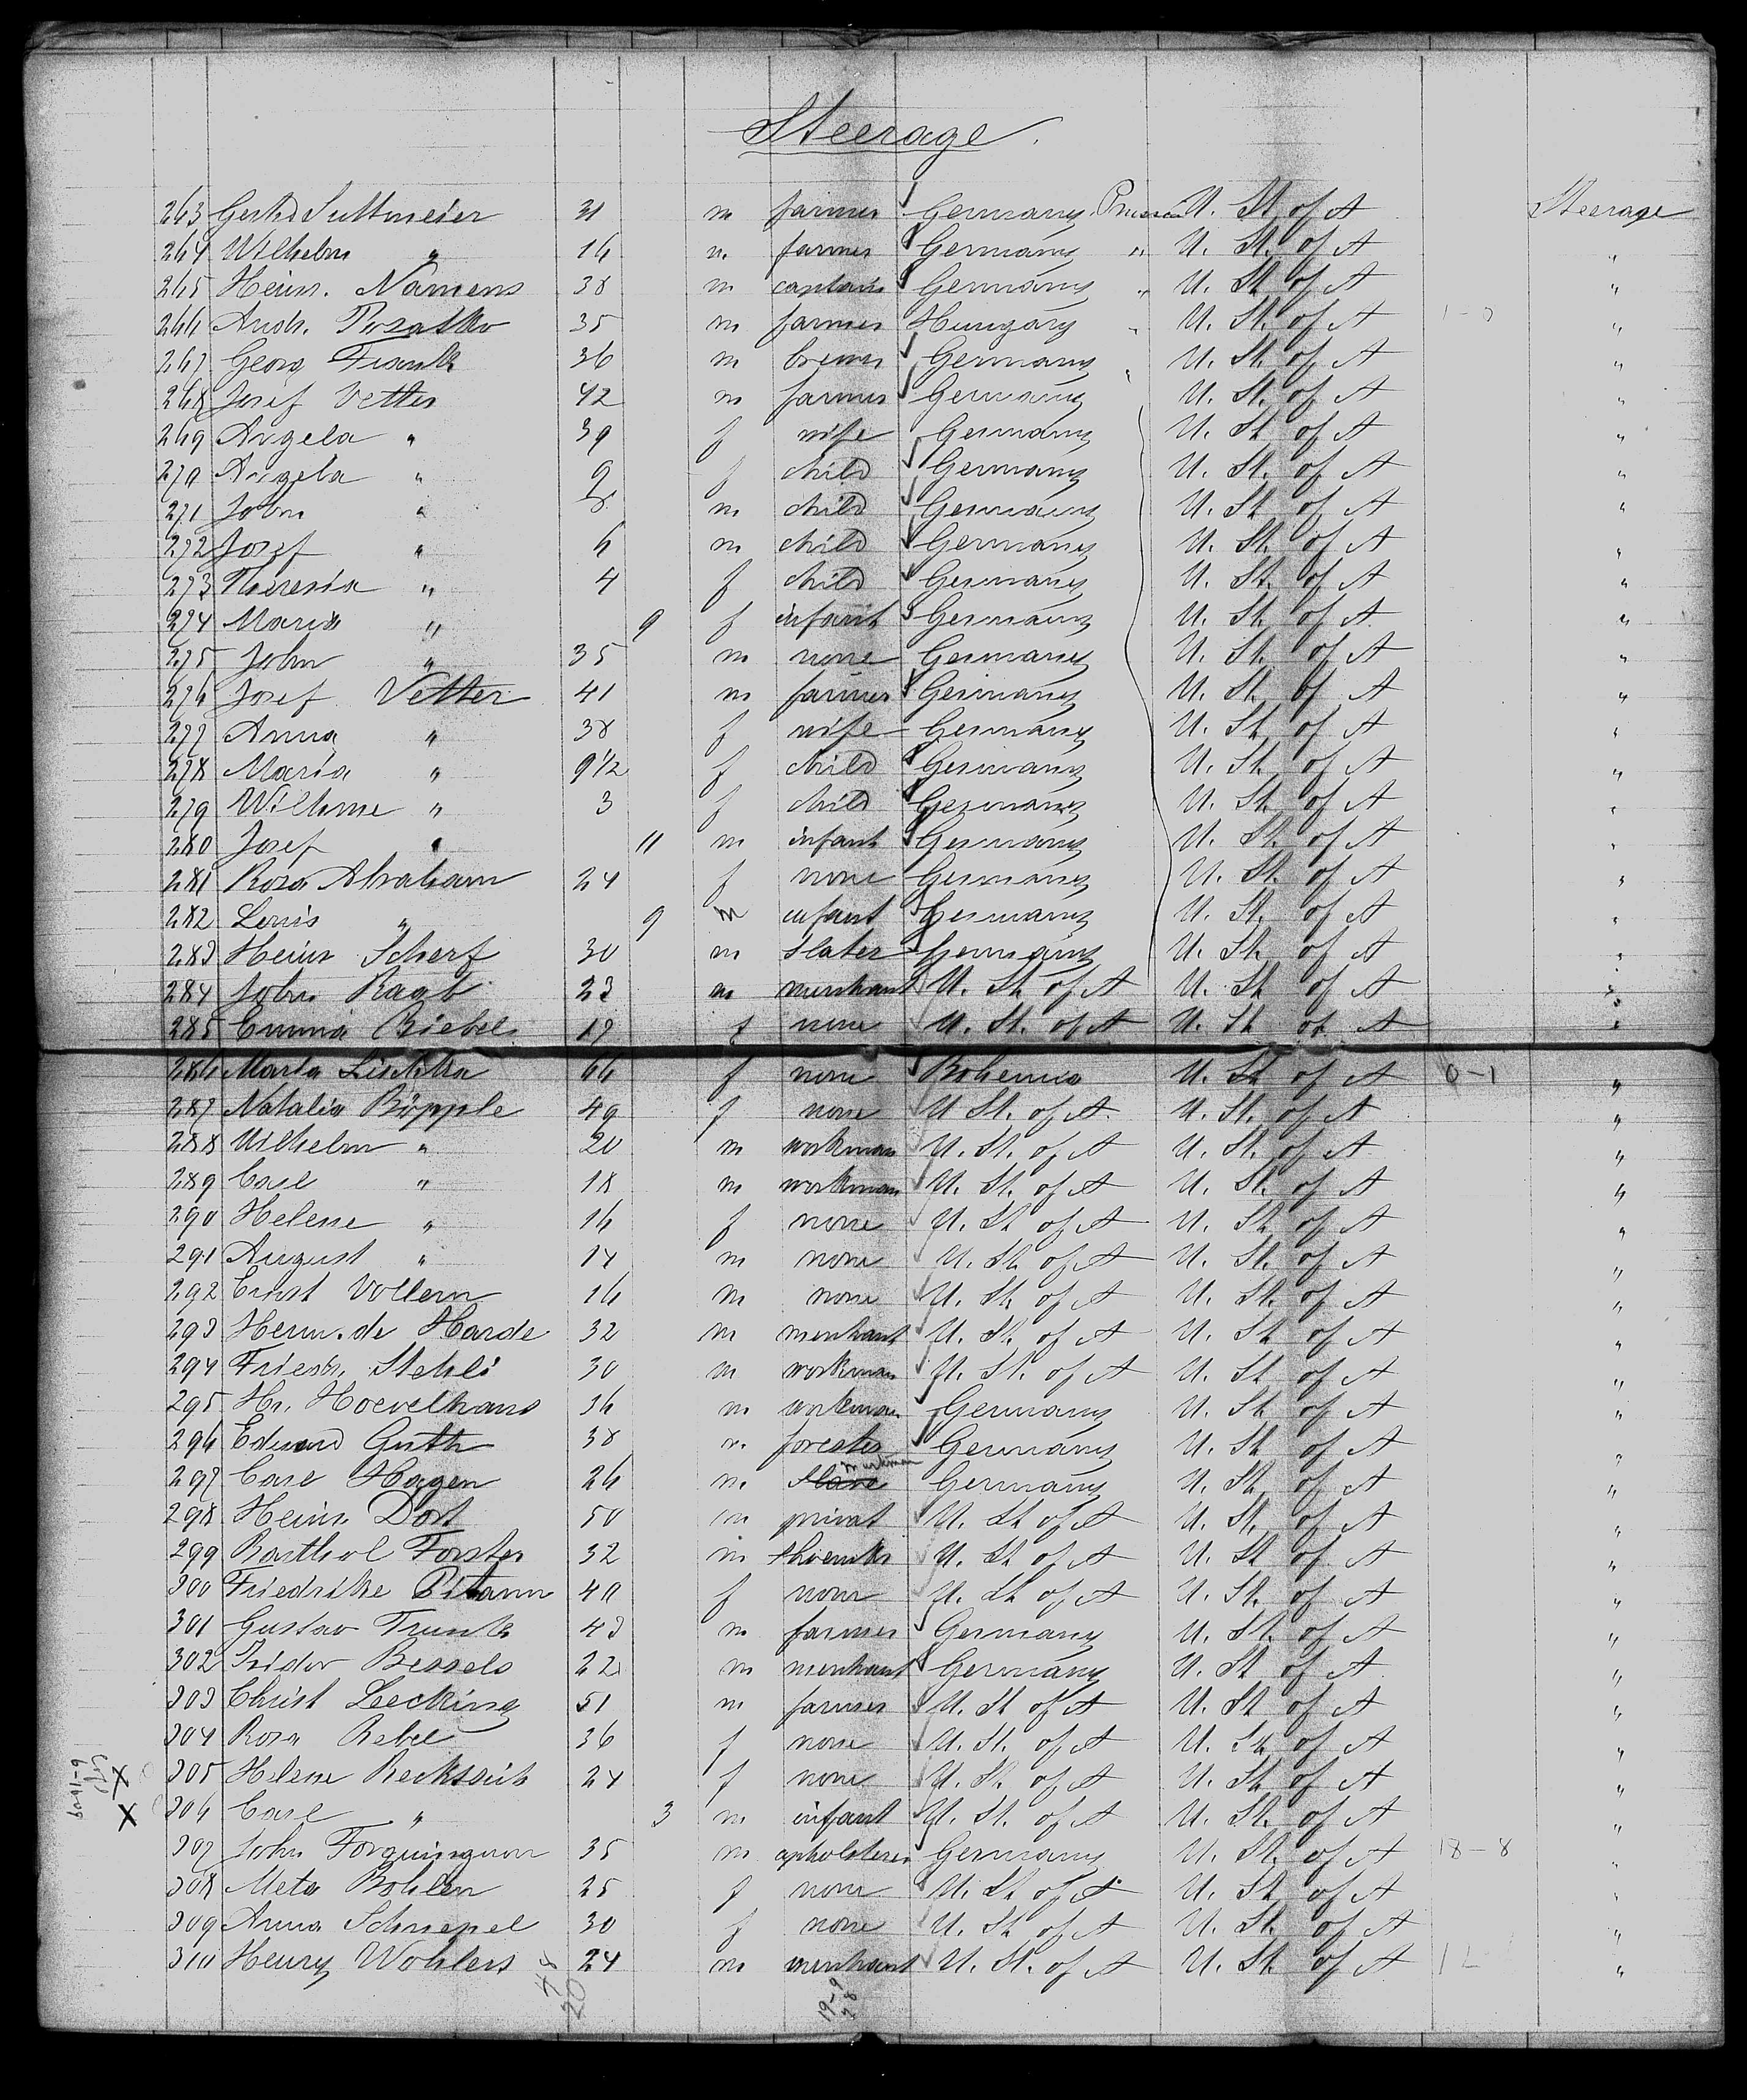 Steerage.
263 Gerhd Suttmeier 31 m farmer Germany Prussia U. St. of A Steerage
264 Wilhelm " 16 m farmer Germany " U. St. of A "
265 Heinr. Namens 38 m captain Germany " U. St. of A "
266 Andr. 35 m farmer Hungary " U. St. of A "
267 Georg Frank 36 m brewer Germany " U. St. of A "
268 Josef Vetter 42 m farmer Germany U. St. of A "
269 Angela " 39 f wife Germany U. St. of A "
270 Angela " 9 f child Germany U. St. of A "
271 John " 8 m child Germany U. St. of A "
272 Josef " 6 m child Germany U. St. of A "
273 Theresia " 4 f child Germany U. St. of A "
274 Maria " 9 f infant Germany U. St. of A "
275 John " 35 m none Germany U. St. of A "
276 Josef Vetter 41 m farmer Germany U. St. of A "
277 Anna " 38 f wife Germany U. St. of A "
278 Maria " 9 1/2 f child Germany U. St. of A "
279 Wilhme " 3 f child Germany U. St. of A "
280 Josef " 11 m infant Germany U. St. of A "
281 Rosa Abraham 24 f none Germany U. St. of A "
282 Louis " 9 m infant Germany U. St. of A "
283 Heinr Scherf 30 m slater Germany U. St. of A "
284 John Raab 23 m merchant U. St. of A U. St. of A "
285 Emma Riebel 19 f none U. St. of A U. St. of A "
286 Maria 66 f none Bohemia U. St. of A 0-1 "
287 Natalia Böpple 49 f none U. St. of A U. St. of A "
288 Wilhelm " 20 m workman U. St. of A U. St. of A "
289 Carl " 18 m workman U. St. of A U. St. of A "
290 Helene " 16 f none U. St. of A U. St. of A "
291 August " 14 m none U. St. of A U. St. of A "
292 Ernst Vollern 16 m none U. St. of A U. St. of A "
293 Herm. de Harde 32 m merchant U. St. of A U. St. of A "
294 Friedr. Stehli 30 m workman U. St. of A U. St. of A "
295 Hr. Hoevelhans 36 m workman Germany U. St. of A "
296 Eduard Guth 38 m forester Germany U. St. of A "
297 Carl Hagen 26 m workman Germany U. St. of A "
298 Heinr. Dort 50 m privat U. St. of A U. St. of A "
299 Barthol Forster 32 m shoemkr U. St. of A U. St. of A "
300 Friedrike 40 f none U. St. of A U. St. of A "
301 Gustav Trunk 43 m farmer Germany U. St. of A "
302 Isidor Bessels 22 m merchant Germany U. St. of A "
303 Christ Lecking 51 m farmer U. St. of A U. St. of A "
304 Rosa Rebel 36 f none U. St. of A U. St. of A "
305 Helene 24 f none U. St. of A U. St. of A "
306 Carl " 3 m infant U. St. of A U. St. of A "
307 John Forquingnon 35 m upholsterer Germany U. St. of A 18-8 "
308 Meta Bohlen 25 f none U. St. of A U. St. of A "
309 Anna Schnepel 30 f none U. St. of A U. St. of A "
310 Henry Wohlers 24 m merchant U. St. of A U. St. of A "